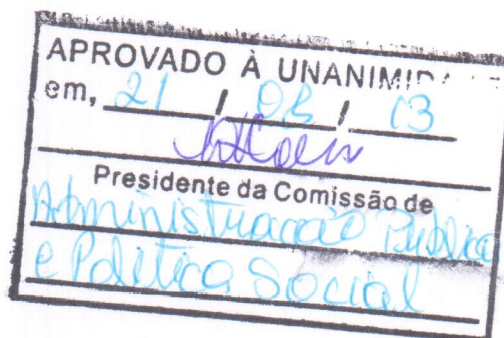 APROVADO À UNANIMID
em, 21 / 08 / 13
Presidente da Comissão de
Administração Pública
e Política Social